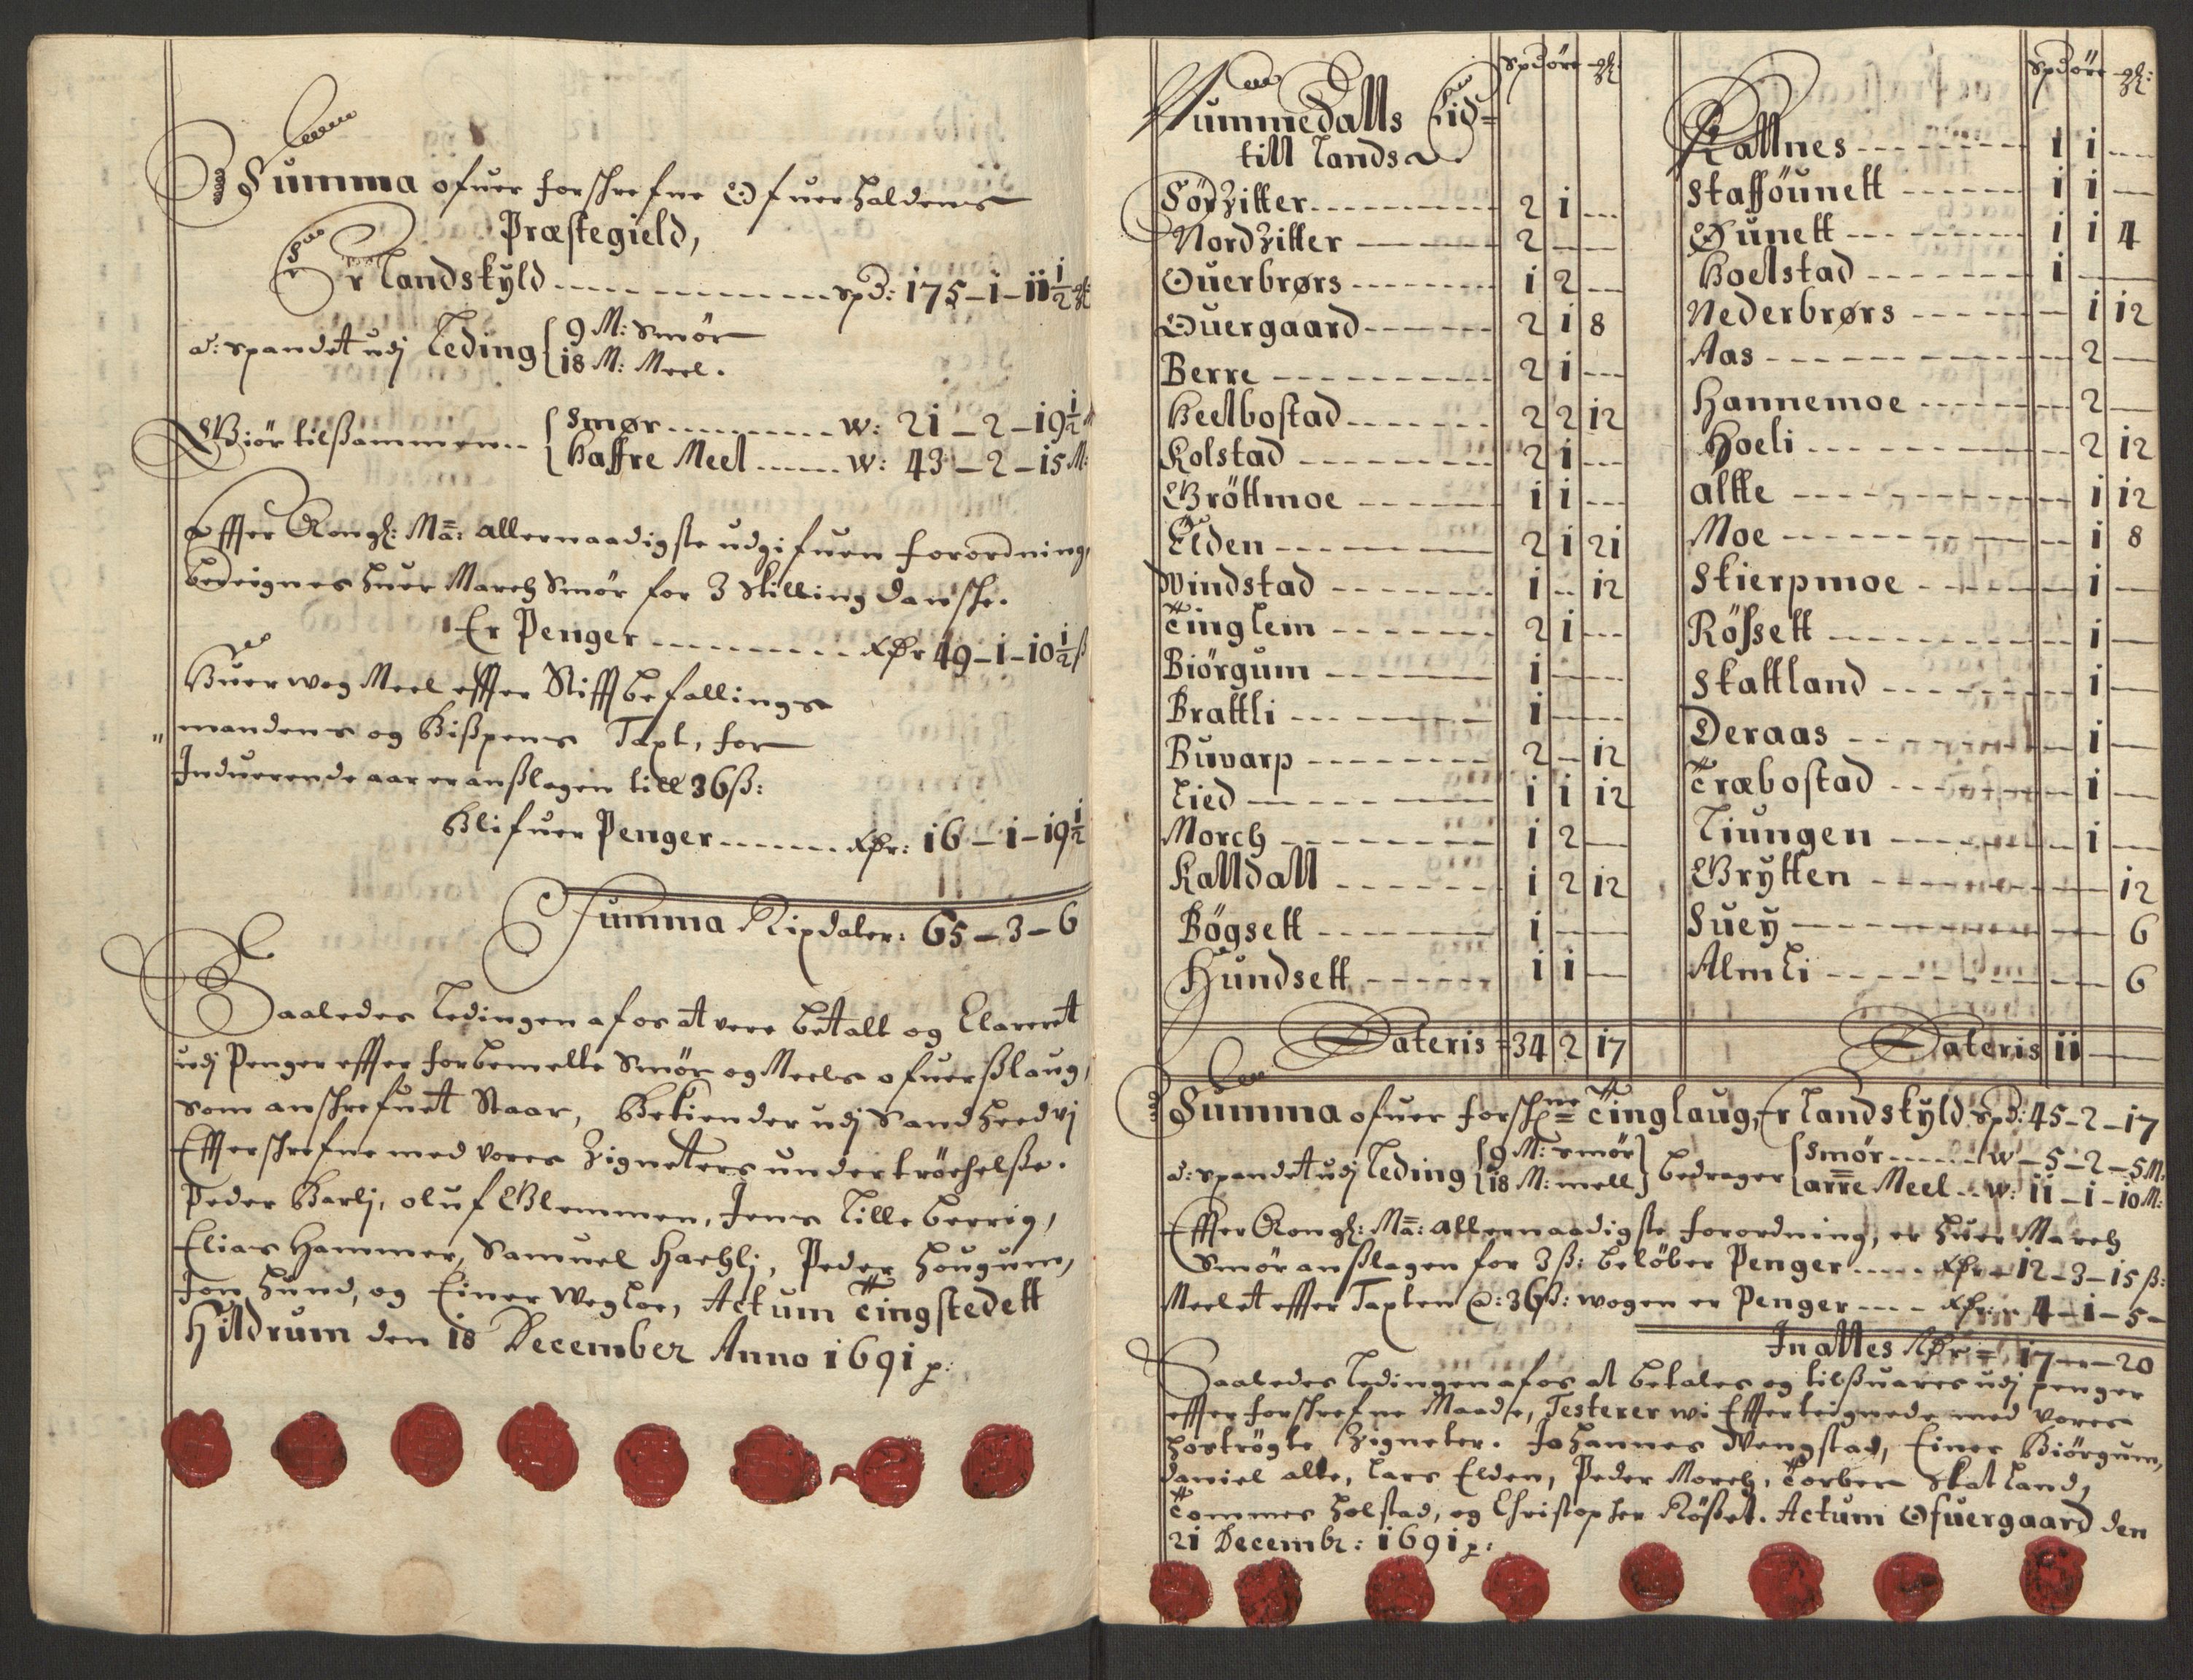 Summa ofuer forschrefne Ofuerhaldens
Præstegield,
Er Landskyld spd: 175-1-11 1/2 gl
a: spandet udj Leding { 9 M: Smör
18 M: Meel.
Giör tilßammen { Smør w: 21-2-19 1/2
Haffre Meel w: 43-2-15 M:
Effter Kongl: Ma: allernaadigste udgifuen forordning,
bereignes huer March Smör for 3 skilling danske.
Er Penger Rdr 49-1-10 1/2 ß
Huer wog Meel effter Stifftbefallings
mandens og Bißpens Taxt, for
Induerende aar er anßlagen till 36 ß:
Blifuer Penger Rdr: 16-1-19 1/2
Summa Rixdaler: 65-3-6
Saaledes Ledingen af os at vere betalt og Clareret
udj Penger effter forbemelte Smör og Meels ofuerßlaug,
som anschrefuet Staar, Bekiender udj Sandhed vi
Effterschrefne med vores Zigneters undertröchelße.
Peder Barlj, oluf Glemmen, Jens Lille berrig,
Elias Hammer, Samuel Hachlj, Peder Hougum,
Jon Hund, og Einer Wegloe, Actum Tingstedett
Hildrum den 18 December Anno 1691 p:
Nummedalls Eid=
till Lands
spd öre gl:
Sörzitter 2 1
Nordzitter 2
Ouerbrørs 1 2
Ouergaard 2 1 8
Berre 2 1
Beelbostad 2 2 12
Kolstad 2 1
Gröttmoe 1 1
Elden 2 1 21
Windstad 1 12
Tinglein 2 1
Biörgum 1
Brattli 1
Buvarp 2 12
Lied 1 1 12
Morch 1 2
Kalldall 1 2 12
Bögsett 1
Hundsett 1 1
Lateris 34 2 17
spd öre gl:
Kallnes 1 1
Staffőunett 1 1
Gunett 1 1 4
Boelstad 1
Nederbrørs 1 12
Aas 2
Hannemoe 2
Hoeli 2 12
altte 1 12
Moe 1 8
Skierpmoe 1
Rößett 1
Skattland 1
Deraas 1
Træbostad 1
Liungen 1
Grytten 12
Suey 6
Almli 6
Lateris 11
Summa ofuer forschne Tinglaug, Er Landskyld Spd: 45-2-17
a: spandet udj Leding { 9 M: smör
18 M: mell } bedrager { Smör w-5-2-5 M:
arre Meel w: 11-1-10 M:
Effter Kongl: Ma: allernaadigste forordning, er huer March
Smör anßlagen for 3 ß: belöber Penger Rdr 12-3-15 ß:
Meelet effter Taxten @: 36 ß: wogen er Penger Rdr: 4-1-5
In alles Rdr = 17-20
Saaledes Ledingen af os at betales og tilßuares udj penger
effter forschrefne Maade, Testerer wi Effterteignede med vores
hoströgte Zigneter. Johannes Wengstad, Einer Biörgum,
Daniel alte, Lars Elden, Peder Morch, Torber Skatland,
Tommes Holstad, og Christopher Rößet. Actum Ofuergaard den
21 Decembr: 1691 p: